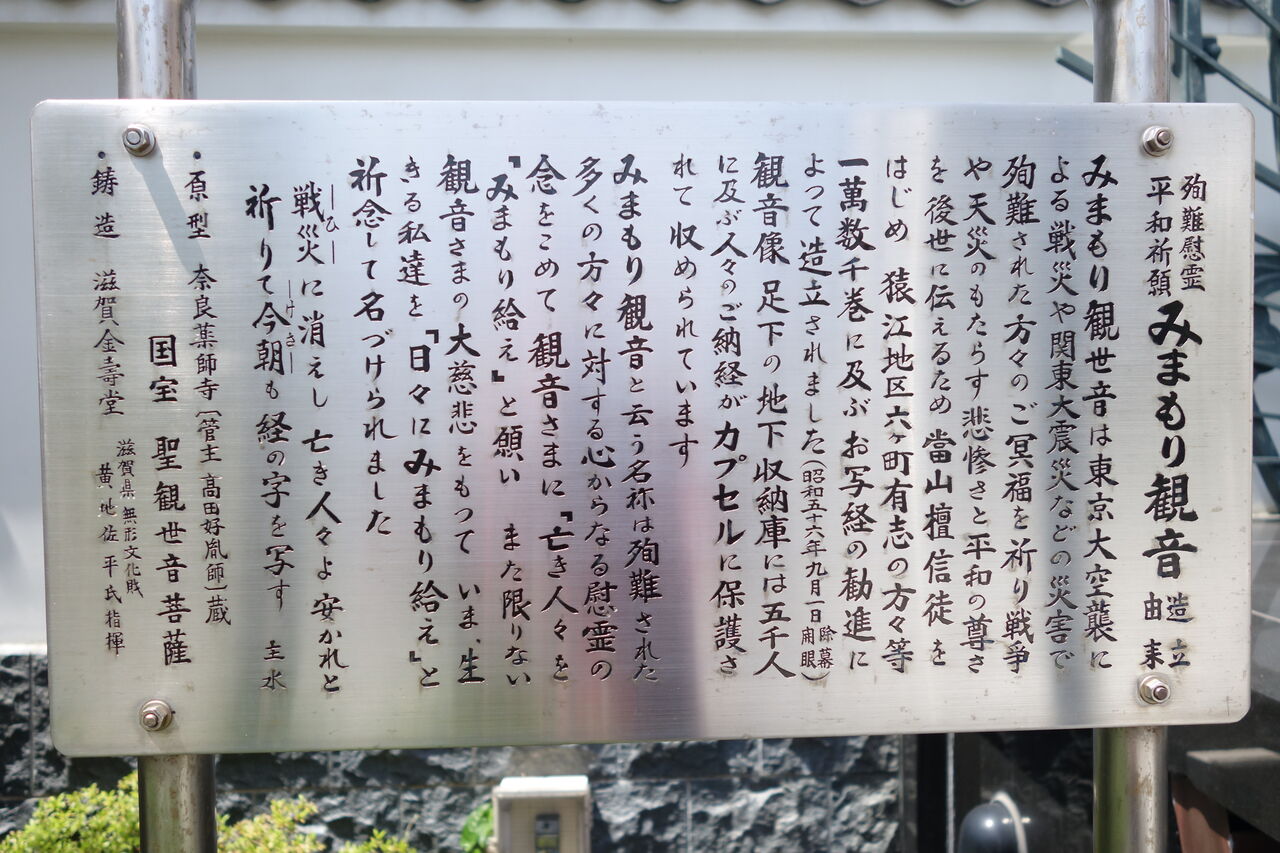 殉難慰霊
平和祈願
みまもり観音
造立
由来
みまもり観世音は東京大空襲に
よる戦災や関東大震災などの災害で
殉難された方々のご冥福を祈り戦争
や天災のもたらす悲惨さと平和の尊さ
を後世に伝えるため 當山檀信徒を
はじめ 猿江地区六ヶ町有志の方々等
一萬数千巻に及ぶお写経の勧進に
よって造立されました(昭和五十六年九月一日 除幕 開眼)
観音像 足下の地下収納庫には五千人
に及ぶ人々のご納経がカプセルに保護さ
れて収められています
みまもり観音と云う名称は殉難された
多くの方々に対する心からなる慰霊の
念をこめて 観音さまに『亡き人々を
『みまもり給え』と願い また限りない
観音さまの大慈悲をもって いま、生
きる私達を『日々にみまもり給え』と
祈念して名づけられました
戦災に消えし亡き人々よ安かれと
ひ
祈りて今朝も経の字を写す 圭水
けさ
・原型 奈良薬師寺〔管主 高田好胤師〕蔵
国宝 聖観世音菩薩
・鋳造 滋賀 金壽堂
滋賀県 無形文化財
黄地佐平氏指揮